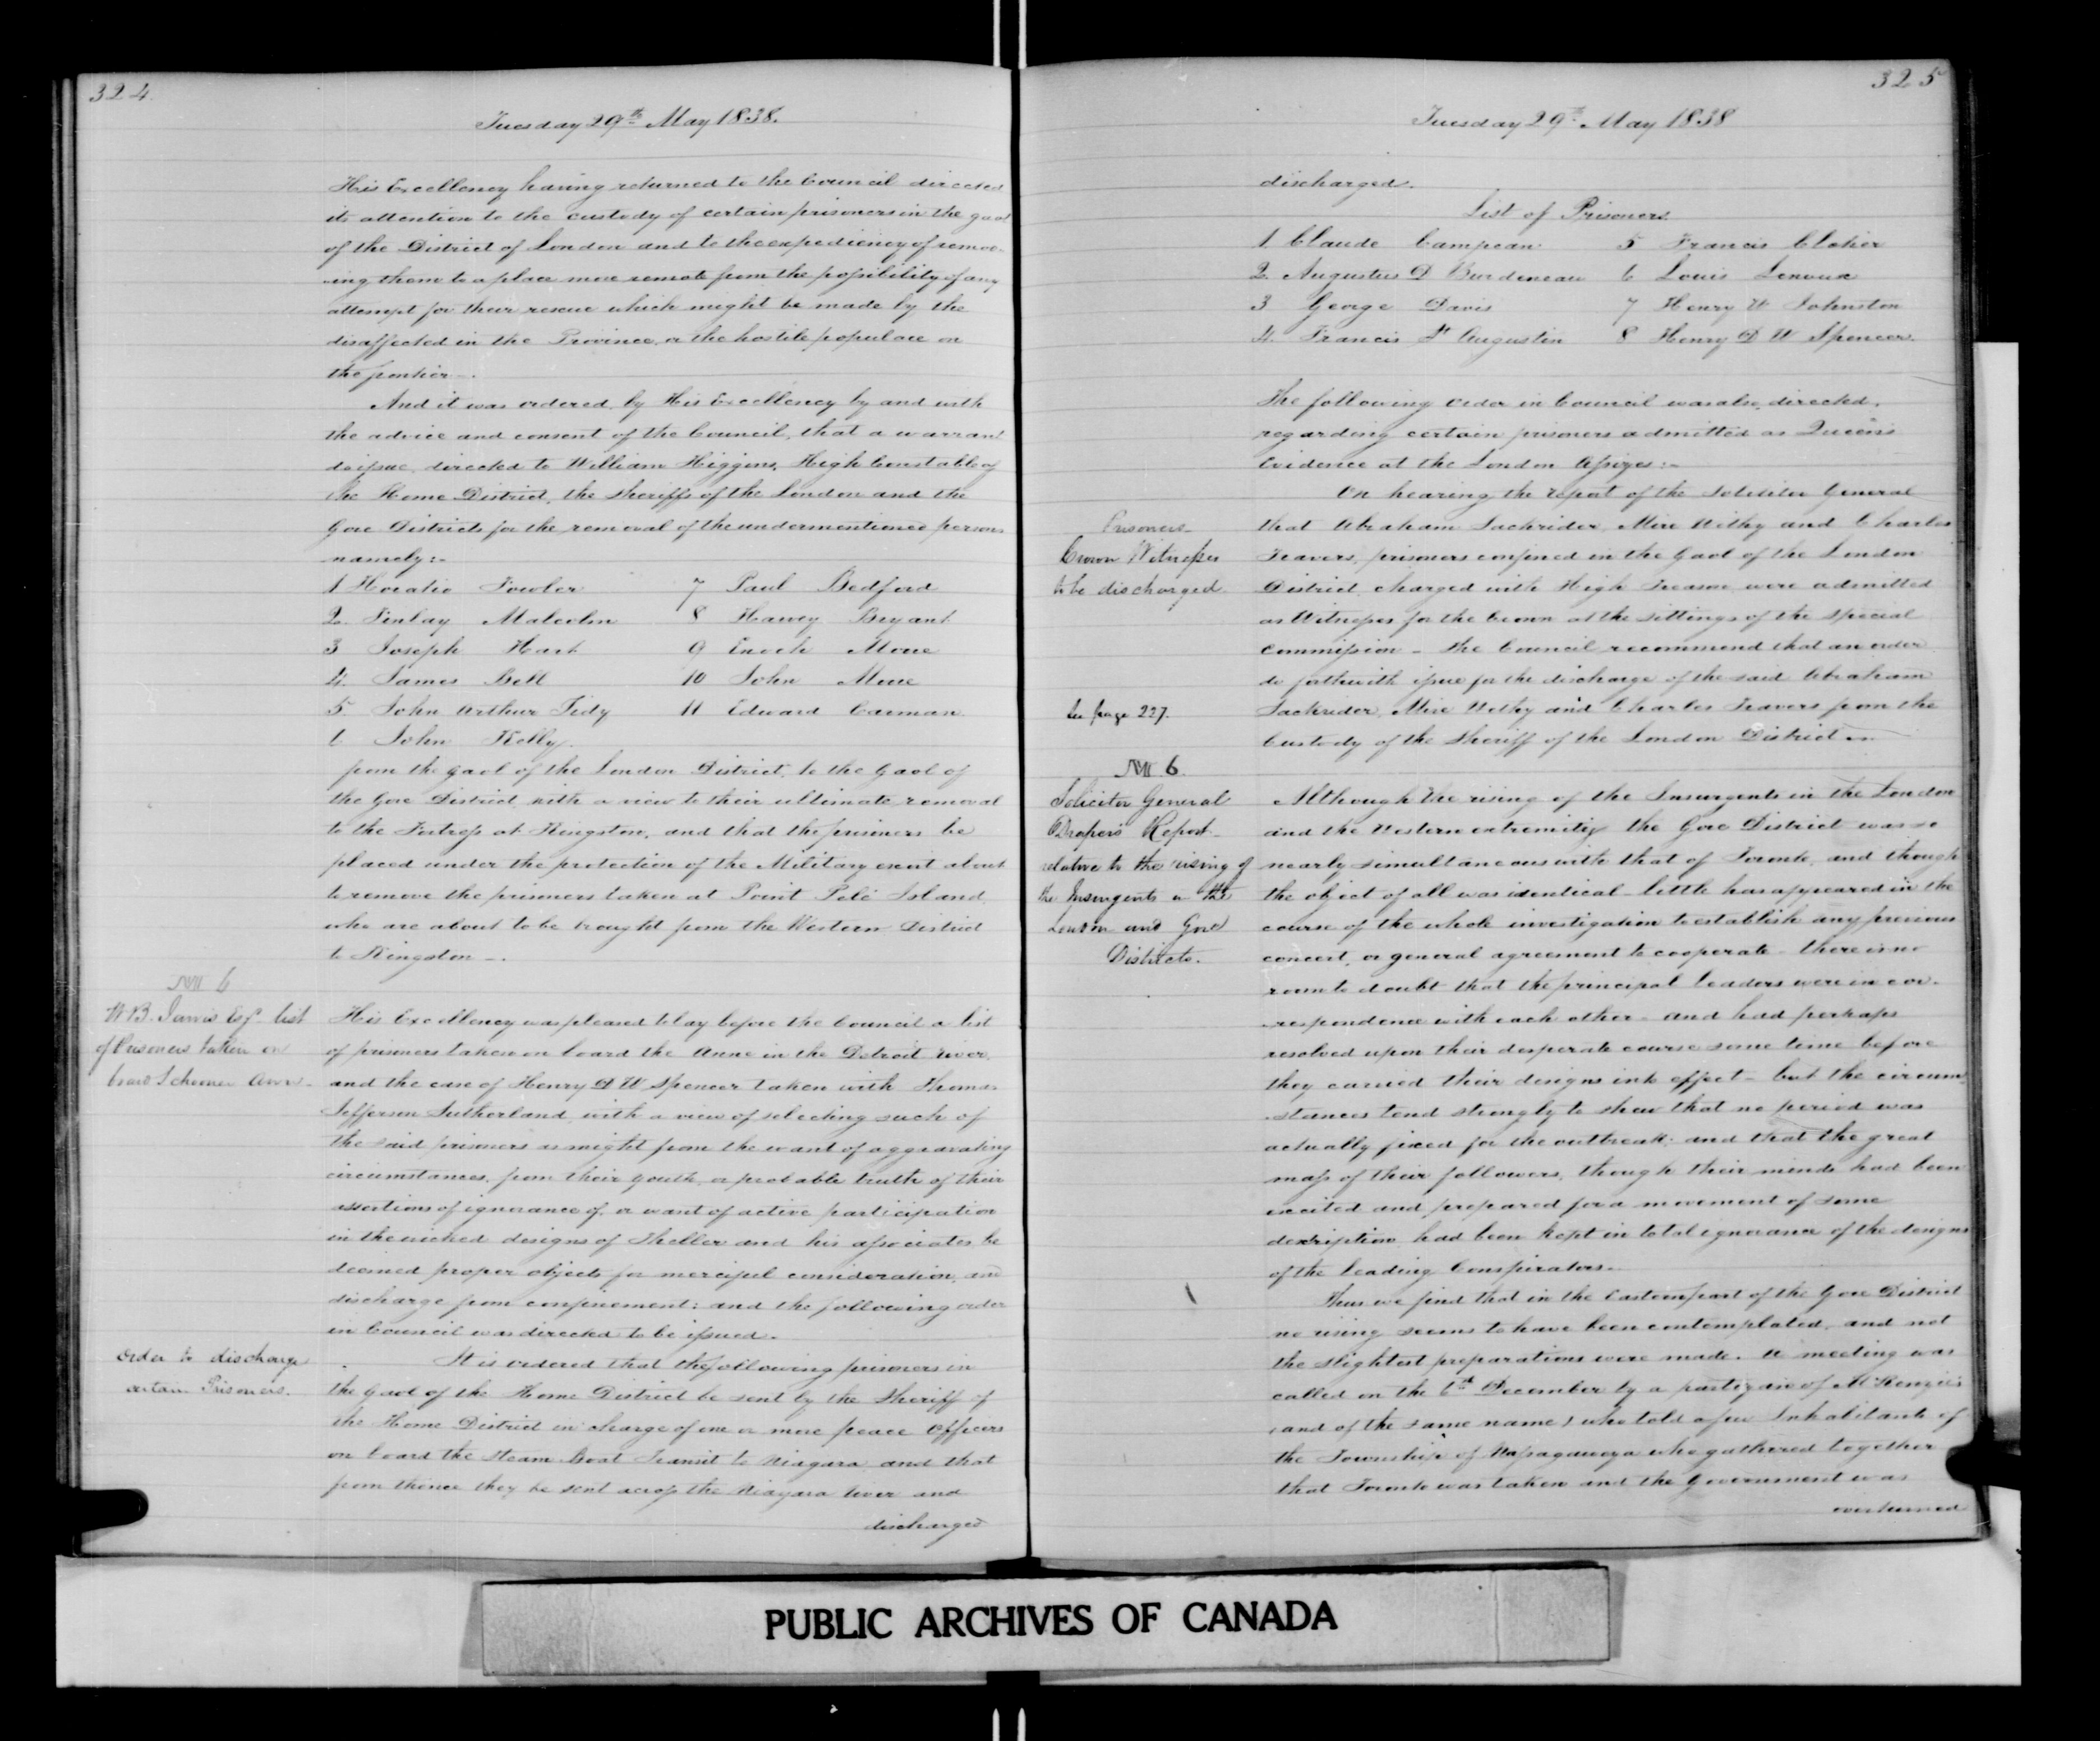 324.
Tuesday 29th May 1838.
His Excellency having returned to the Council directed
its attention to the custody of certain prisoners in the gaol
of the District of London and to the expediency of remov-
-ing them to a place more remote from the possibility of any
attempt for their rescue which might be made by the
disaffected in the Province, or the hostile populace on
the frontier —.
And it was ordered by His Excellency by and with
the advice and consent of the Council, that a warrant
do issue, directed to William Higgins, High Constable of
the Home District, the Sheriffs of the London and the
Gore Districts for the removal of the undermentioned persons
namely:-
1 Horatio Fowler 7 Paul Bedford
2. Finlay Malcolm 8 Harvey Bryant
3 Joseph Hart 9 Enoch Moore
4. James Bell 10 John Moore
5. John Arthur Tidy 11 Edward Carman.
6 John Kelly.
from the gaol of the London District, to the Gaol of
the Gore District with a view to their ultimate removal
to the Fortress at Kingston, and that the prisoners be
placed under the protection of the Military escort about
to remove the prisoners taken at Point Pelé Island,
who are about to be brought from the Western District
to Kingston —.
6
W.B. Jarvis Esqr. list
of Prisoners taken on
board Schooner Anne.
His Excellency was pleased to lay before the Council a list
of prisoners taken on board the Anne in the Detroit river,
and the case of Henry D W Spencer taken with Thomas
Jefferson Sutherland with a view of selecting such of
the said prisoners as might from the want of aggravating
circumstances, from their youth, or probable truth of their
assertions of ignorance of, or want of active participation
in the wicked designs of Theller and his associates, be
deemed proper objects for merciful consideration and
discharge from confinement: and the following order
in Council was directed to be issued.
Order to discharge
certain Prisoners.
It is ordered that the following prisoners in
the gaol of the Home District be sent by the Sheriff of
the Home District in charge of one or more peace Officers
on board the Steam Boat Transit to Niagara and that
from thence they be sent across the Niagara river and
discharged
325
Tuesday 29th May 1838
discharged.
List of Prisoners
1. Claude Campeau 5 Francis Clokier
2. Augustus D Burdeneau 6 Louis Lenoux
3 George Davis 7 Henry W Johnston
4. Francis St Augustin 8 Henry D W Spencer.
The following Order in Council was also directed.
regarding certain prisoners admitted as Queen's
Evidence at the London Assizes:-
Prisoners
Crown Witnesses
to be discharged
See page 227.
On hearing the report of the Solicitor General
that Abraham Sackrider, Mire Withy and Charles
Travers, prisoners confined in the Gaol of the London
District, charged with High Treason were admitted
as Witnesses for the Crown at the sittings of the Special
Commission — the Council recommend that an order
do forthwith issue for the discharge of the said Abraham
Sackrider, Mire Withy and Charles Travers from the
Custody of the Sheriff of the London District
6.
Solicitor General
Draper's Report
relative to the rising of
the Insurgents in the
London and Gore
Districts.
Although the rising of the Insurgents in the London
and the Western extremity the Gore District was so
nearly simultaneous with that of Toronto, and though
the object of all was identical little has appeared in the
course of the whole investigation to establish any previous
concert, or general agreement to cooperate — there is no
room to doubt that the principal leaders were in cor-
-respondence with each other — and had perhaps
resolved upon their desperate course some time before
they carried their designs into effect — but the circum-
-stances tend strongly to shew that no period was
actually fixed for the outbreak: and that the great
mass of their followers, though their minds had been
excited and prepared for a movement of some
description had been kept in total ignorance of the designs
of the leading Conspirators.
Thus we find that in the Eastern part of the Gore District
no rising seems to have been contemplated, and not
the slightest preparations were made. A meeting was
called on the 6th December by a partizan of McKenzie's
(and of the same name) who told a few Inhabitants of
the Township of Nassagaweya who gathered together
that Toronto was taken and the Government was
overturned
PUBLIC ARCHIVES OF CANADA